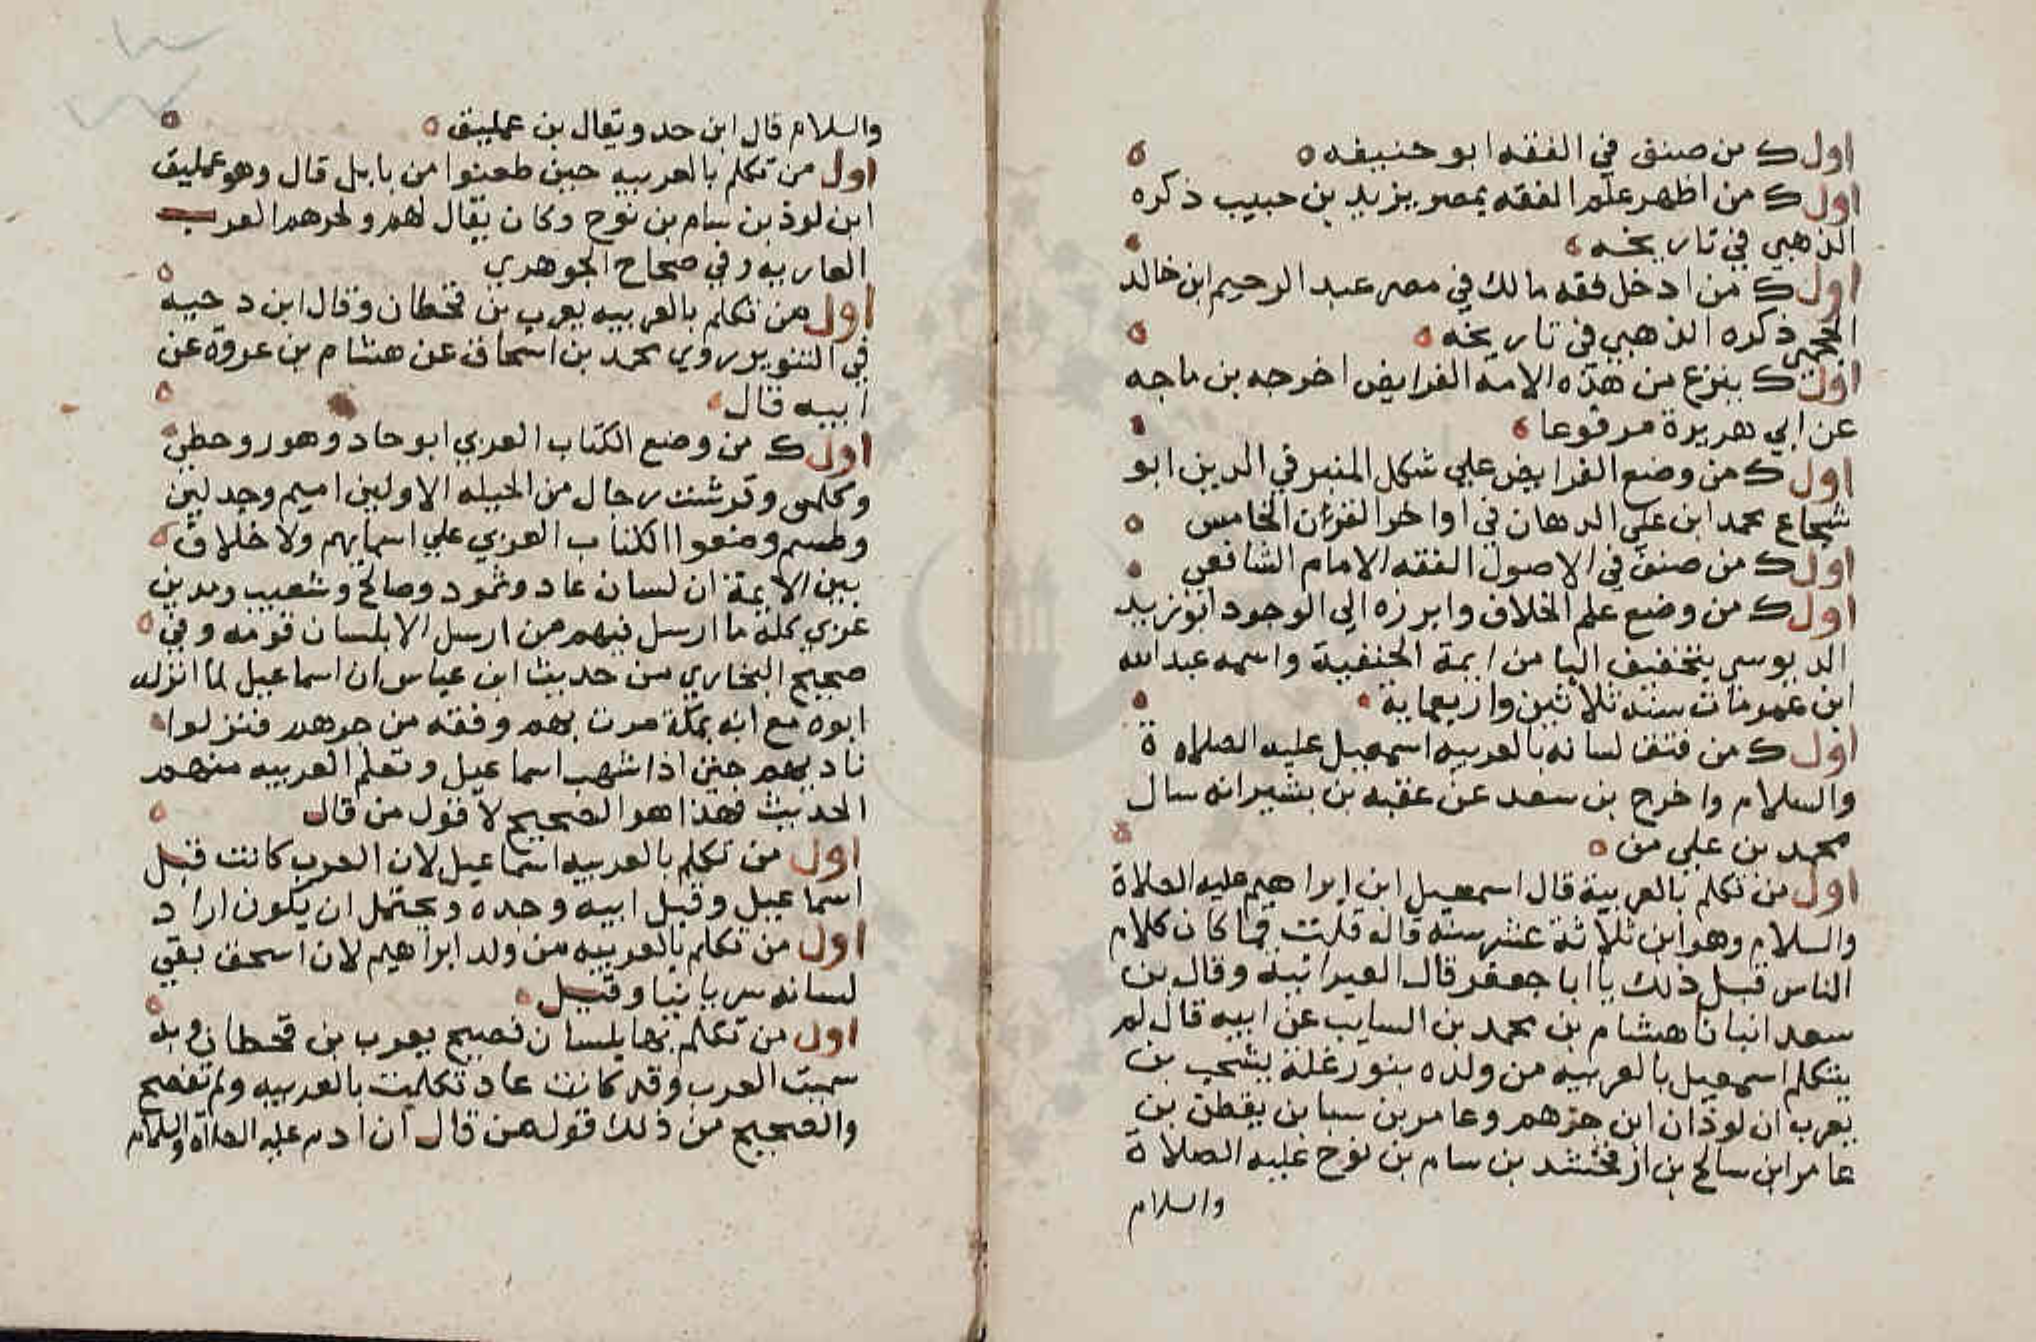 اول من صنف في الفقه ابو حنيفه
اول من اظهر علم الفقه بمصر يزيد بن حبيب ذكره
الذهبي في تاريخه
اول من ادخل فقه مالك في مصر عبد الرحيم ابن خالد
الجمحي ذكره الذهبي في تاريخه
اول ك ينزع من هذه الامة الفرايض اخرجه بن ماجه
عن ابي هريرة مرفوعا
اول من وضع الفرايض علي شكل المنبر في الدين ابو
شجاع محمد ابن علي الدهان في اواخر القرن الخامس
اول من صنف في الاصول الفقه الامام الشافعي
اول من وضع علم الخلاف وابرزه الي الوجود ابو زيد
الدبوسي بتخفيف البا من ايمة الحنفية واسمه عبد الله
ابن عمر مات سنه ثلاثين واربعماية
اول من فتق لسانه بالعربيه اسمعيل عليه الصلاة
والسلام واخرج بن سعد عن عقبه بن بشير انه سال
محمد بن علي من
اول من تكلم بالعربية قال اسمعيل ابن ابراهيم عليه الصلاة
والسلام وهو ابن ثلاثة عشر سنه قال قلت فما كان كلام
الناس قبل ذلك يا ابا جعفر قال العبرانيه وقال بن
سعد انبانا هشام بن محمد بن السايب عن ابيه قال لم
يتكلم اسمعيل بالعربيه من ولده بنو رغلة يشجب بن
يعرب ان لوذان ابن جرهم وعامر بن سبا بن يقطن بن
عامر ابن سالح بن ارفخشد بن سام بن نوح عليه الصلاة
والسلام
والسلام قال ابن حد ويقال بن عمليق
اول من تكلم بالعربيه حين ظعنوا من بابل قال وهو عمليق
ابن لوذ بن سام بن نوح وكان يقال لهم ولجرهم العرب
العاربه وفي صحاح الجوهري
اول من تكلم بالعربيه يعرب بن قحطان وقال ابن دحيه
في التنوير روي محمد بن اسحاق عن هشام بن عروة عن
ابيه قال
اول من وضع الكتاب العربي ابو جاد وهور وحطي
وكلمن وقرشت رجال من الجبله الاولين اميم وجديس
وطسم وضعوا الكتاب العربي علي اسمايهم ولا خلاف
بين الايمة ان لسان عاد وثمود وصالح وشعيب ومدين
عربي كله ما ارسل فيهم من ارسل الا بلسان قومه وفي
صحيح البخاري من حديث ابن عباس ان اسماعيل لما انزله
ابوه مع امه بمكة مرت بهم رفقه من جرهم فنزلوا
ناديهم حتي اذا شهب اسماعيل وتعلم العربيه منهم
الحديث فهذا هو الصحيح لا قول من قال
اول من تكلم بالعربيه اسماعيل لان العرب كانت قبل
اسماعيل وقبل ابيه وحده ويحتمل ان يكون اراد
اول من تكلم بالعربيه من ولد ابراهيم لان اسحق بقي
لسانه سريانيا وقيل
اول من تكلم بها بلسان فصيح يعرب بن قحطان وبه
سميت العرب وقد كانت عاد تكلمت بالعربيه ولم تفصح
والصحيح من ذلك قول من قال ان ادم عليه الصلاة والسلام